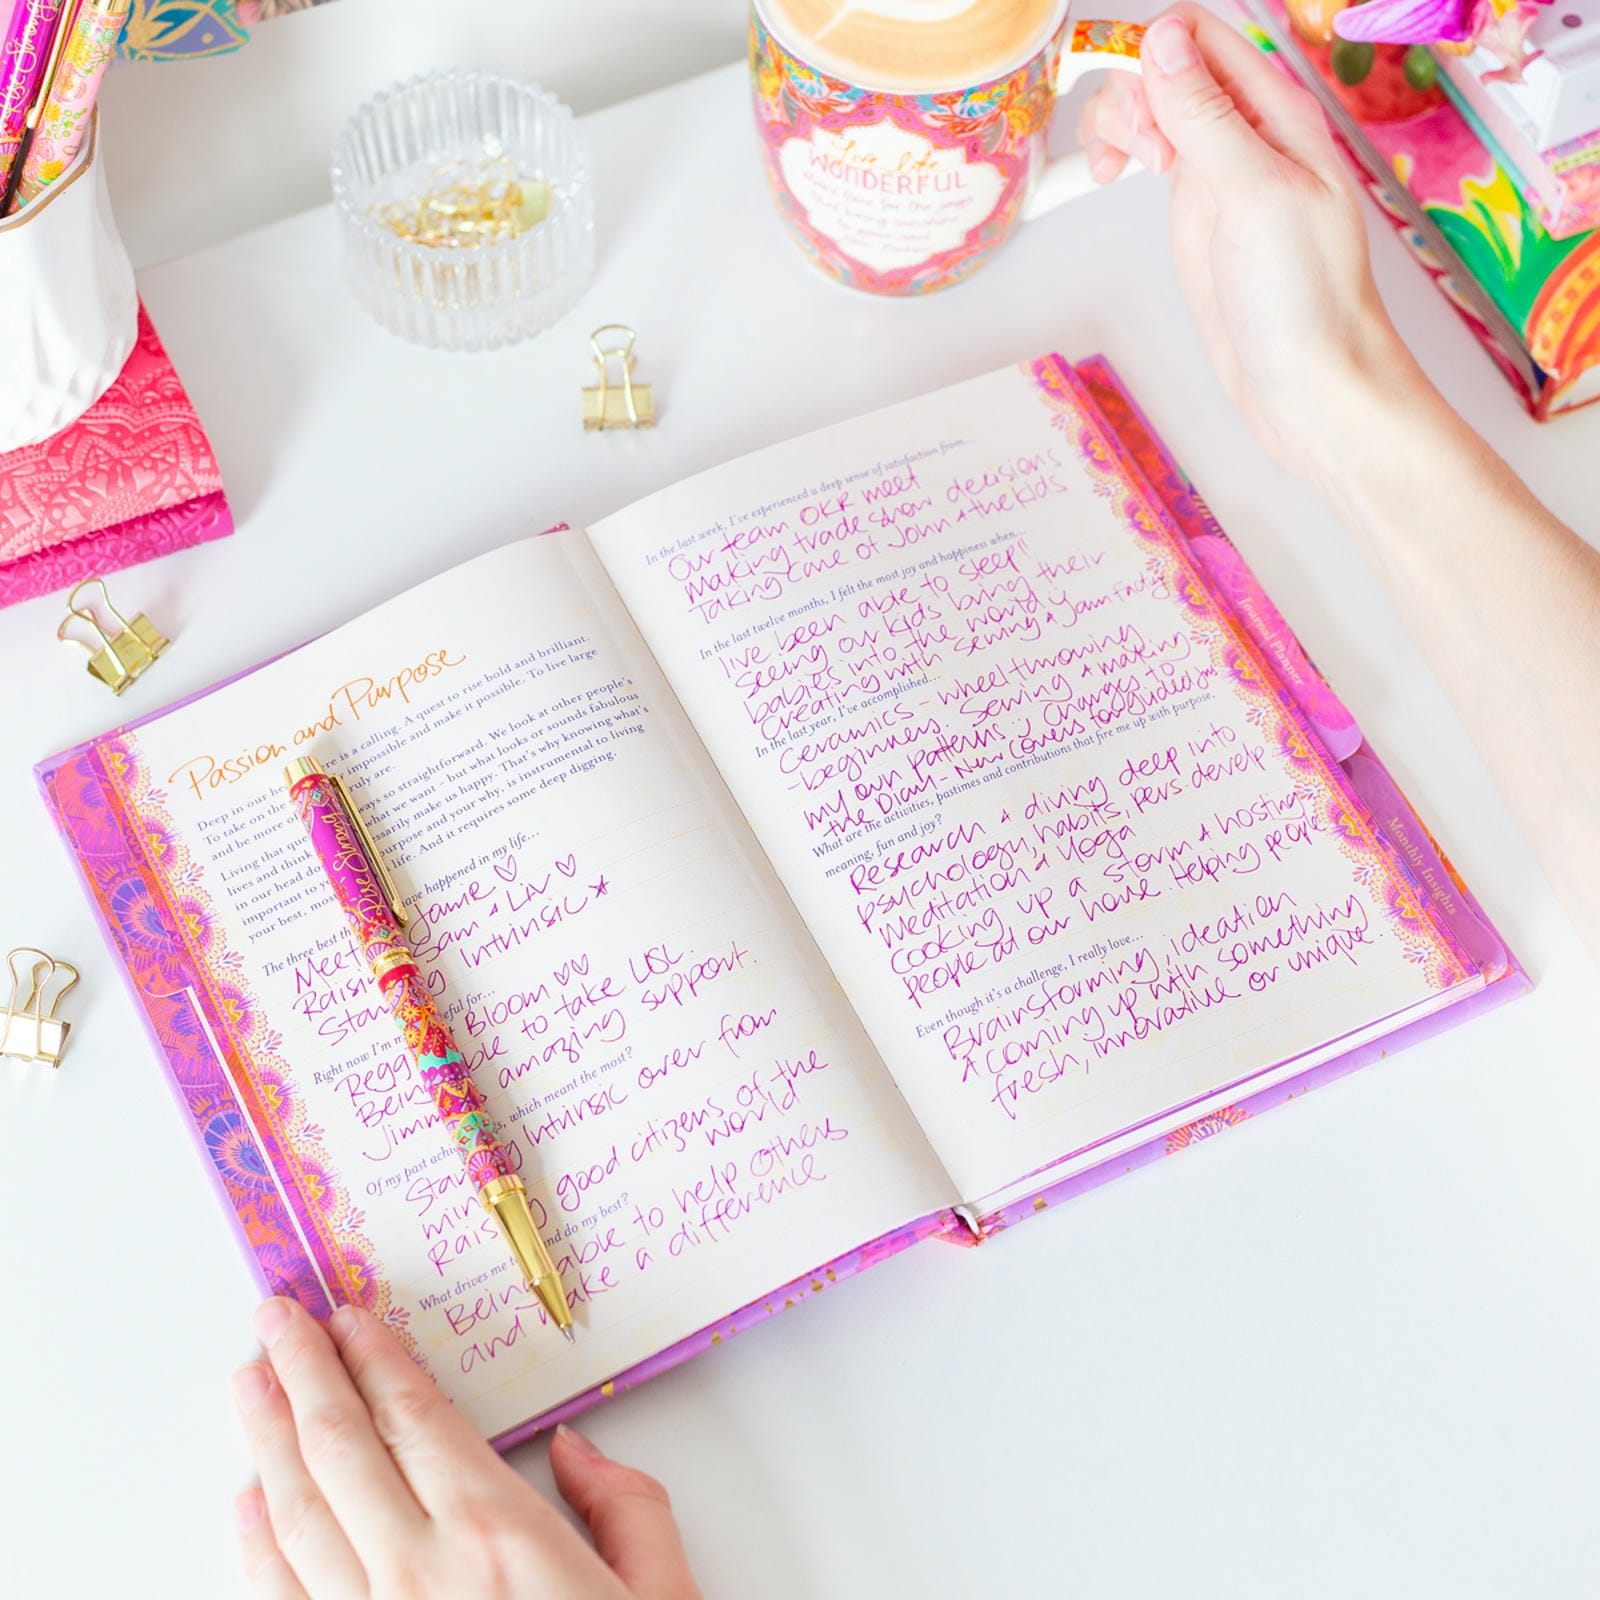 Rise Strong
Live life
WONDERFUL
Make time for the joys
that bring sunshine
to your soul
Passion and Purpose
Deep in our he ere is a calling. A quest to rise bold and brilliant.
To take on the y impossible and make it possible. To live large
and be more o ruly are.
Living that que ways so straightforward. We look at other people's
lives and think what we want - but what looks or sounds fabulous
in our head do ssarily make us happy. That's why knowing what's
important to yo urpose and your why, is instrumental to living
your best, most life. And it requires some deep digging.
The three best th have happened in my life...
Meet Jamie ♡
Raisin Sam & Liv ♡
Sta g Intrinsic ★
Right now I'm m eful for...
Pegg Bloom ♡♡
Being ble to take LSL.
Jimm amazing support.
Of my past achi s, which meant the most?
Sta g Intrinsic over from
min
Rais g good citizens of the
world
What drives me t and do my best?
Being able to help others
and make a difference
Rise Strong
In the last week, I've experienced a deep sense of satisfaction from...
Our team OKR meet
Making trade show decisions
Taking care of John & the kids
In the last twelve months, I felt the most joy and happiness when...
I've been able to sleep!!
Seeing our kids bring their
babies into the world ü
Creating with sewing & Yarn Factory
In the last year, I've accomplished...
Ceramics - wheel throwing
- beginners. Sewing & making
my own patterns ü Changes to
the Diary - New covers too guided jnl
What are the activities, pastimes and contributions that fire me up with purpose,
meaning, fun and joy?
Research & diving deep into
psychology, habits, pers. develp
Meditation & Yoga
Cooking up a storm & hosting
people at our house. Helping people
Even though it's a challenge, I really love...
Brainstorming, ideation
& coming up with something
fresh, innovative or unique.
Journal Planner
Monthly Insights